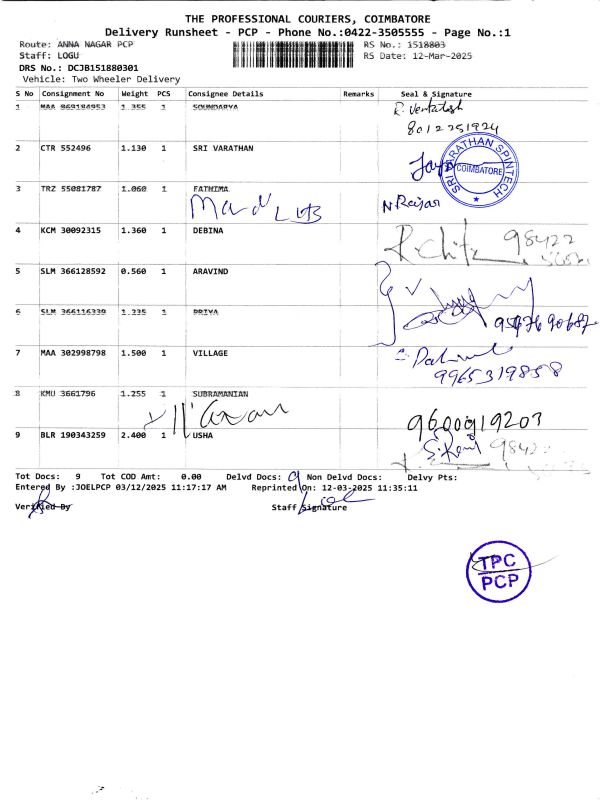 THE PROFESSIONAL COURIERS, COIMBATORE
Delivery Runsheet - PCP - Phone No.:0422-3505555 - Page No.:1
Route: ANNA NAGAR PCP
RS No.: 1518803
Staff: LOGU
RS Date: 12-Mar-2025
DRS No.: DCJB151880301
Vehicle: Two Wheeler Delivery
S No Consignment No Weight PCS Consignee Details Remarks Seal & Signature
1 MAA 869184953 1.355 1 SOUNDARYA
R. Venkatesh
8012251924
2 CTR 552496 1.130 1 SRI VARATHAN
SRI VARATHAN SPINTECH
COIMBATORE
3 TRZ 55081787 1.060 1 FATHIMA
N Rajar
4 KCM 30092315 1.360 1 DEBINA
98422
5 SLM 366128592 0.560 1 ARAVIND
6 SLM 366116339 1.235 1 PRIYA
7 MAA 302998798 1.500 1 VILLAGE
9965319858
8 KMU 3661796 1.255 1 SUBRAMANIAN
9600919203
9 BLR 190343259 2.400 1 USHA
Tot Docs: 9 Tot COD Amt: 0.00 Delvd Docs: 9 Non Delvd Docs: Delvy Pts:
Entered By :JOELPCP 03/12/2025 11:17:17 AM Reprinted On: 12-03-2025 11:35:11
Verified By Staff Signature
TPC
PCP